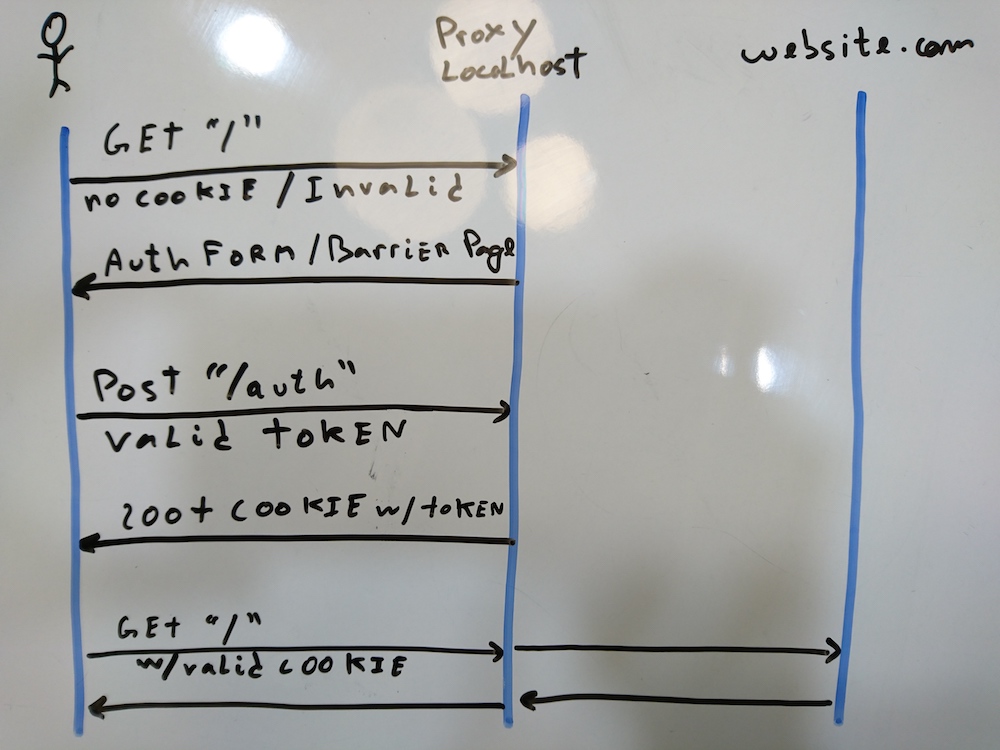 Proxy
Localhost
website.com
GET "/"
no COOKIE / Invalid
Auth FORM / Barrier Page
Post "/auth"
valid TOKEN
200 + COOKIE w/ TOKEN
GET "/"
w/valid COOKIE